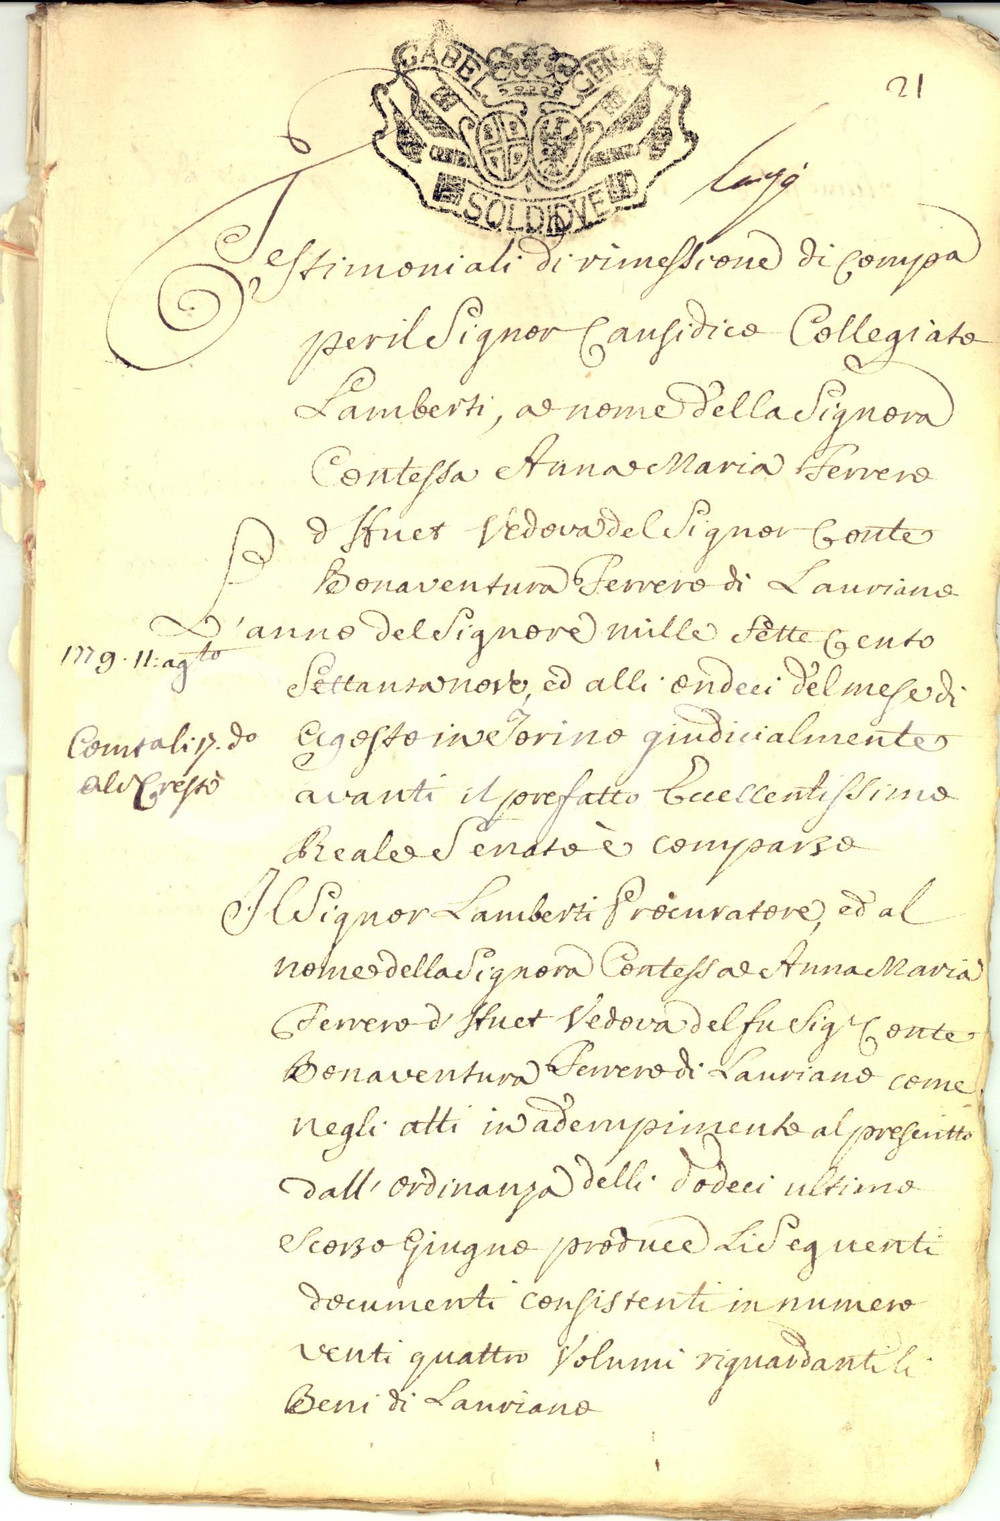 21
GABEL GENER
SOLDI DVE
Testimoniali di rimessione di Compa
per il Signor Causidico Collegiato
Lamberti, a nome della Signora
Contessa Anna Maria Ferrero
d'Huet Vedova del Signor Conte
Bonaventura Ferrero di Lauriano
L'anno del Signore mille sette cento
1779. 11: agto
settanta nove, ed alli ondeci del mese di
Com.ta li 17. do
Agosto in Torino giudicialmente
avanti il prefatto Eccellentissimo
Reale Senato è comparso
Il Signor Lamberti Procuratore, ed al
nome della Signora Contessa Anna Maria
Ferrero d'Huet Vedova del fu Sigr Conte
Bonaventura Ferrero di Lauriano come
negli atti in adempimento al prescritto
dall'ordinanza delli dodeci ultimo
scorso Giugno produce li seguenti
documenti consistenti in numero
venti quattro Volumi riguardanti li
Beni di Lauriano